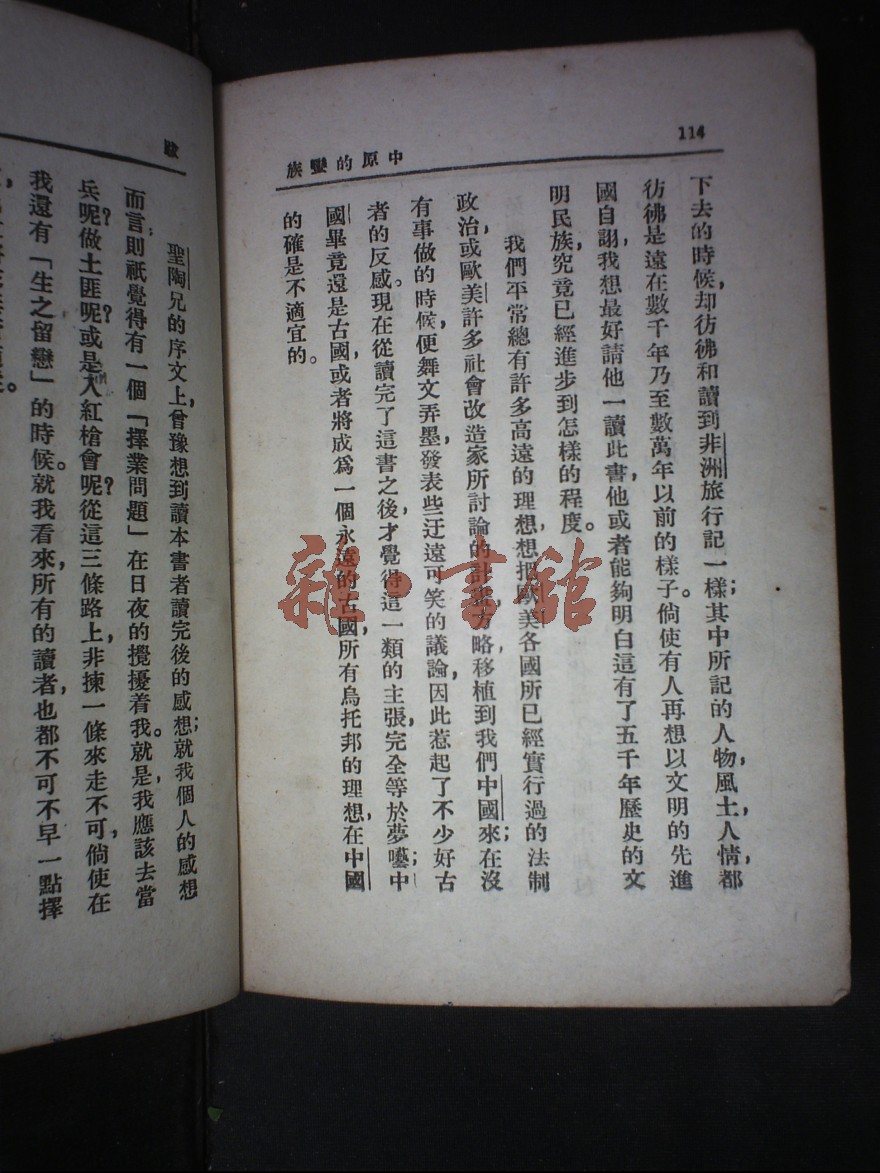 114
中原的蠻族
下去的時候，却彷彿和讀到非洲旅行記一樣；其中所記的人物，風土人情，都
彷彿是遠在數千年乃至數萬年以前的樣子。倘使有人再想以文明的先進
國自詡，我想最好請他一讀此書，他或者能夠明白這有了五千年歷史的文
明民族，究竟已經進步到怎樣的程度。
我們平常總有許多高遠的理想，想把歐美各國所已經實行過的法制
政治，或歐美許多社會改造家所討論的計劃方略，移植到我們中國來；在沒
有事做的時候，便舞文弄墨，發表些迂遠可笑的議論，因此惹起了不少好古
者的反感。現在從讀完了這書之後，才覺得這一類的主張，完全等於夢囈；中
國畢竟還是古國，或者將成爲一個永遠的古國，所有烏托邦的理想，在中國
的確是不適宜的。
跋
聖陶兄的序文上，曾豫想到讀本書者讀完後的感想；就我個人的感想
而言，則祇覺得有一個「擇業問題」在日夜的攪擾着我。就是，我應該去當
兵呢？做土匪呢？或是入紅槍會呢？從這三條路上，非揀一條來走不可，倘使在
我還有「生之留戀」的時候。就我看來，所有的讀者，也都不可不早一點擇
雜·書館